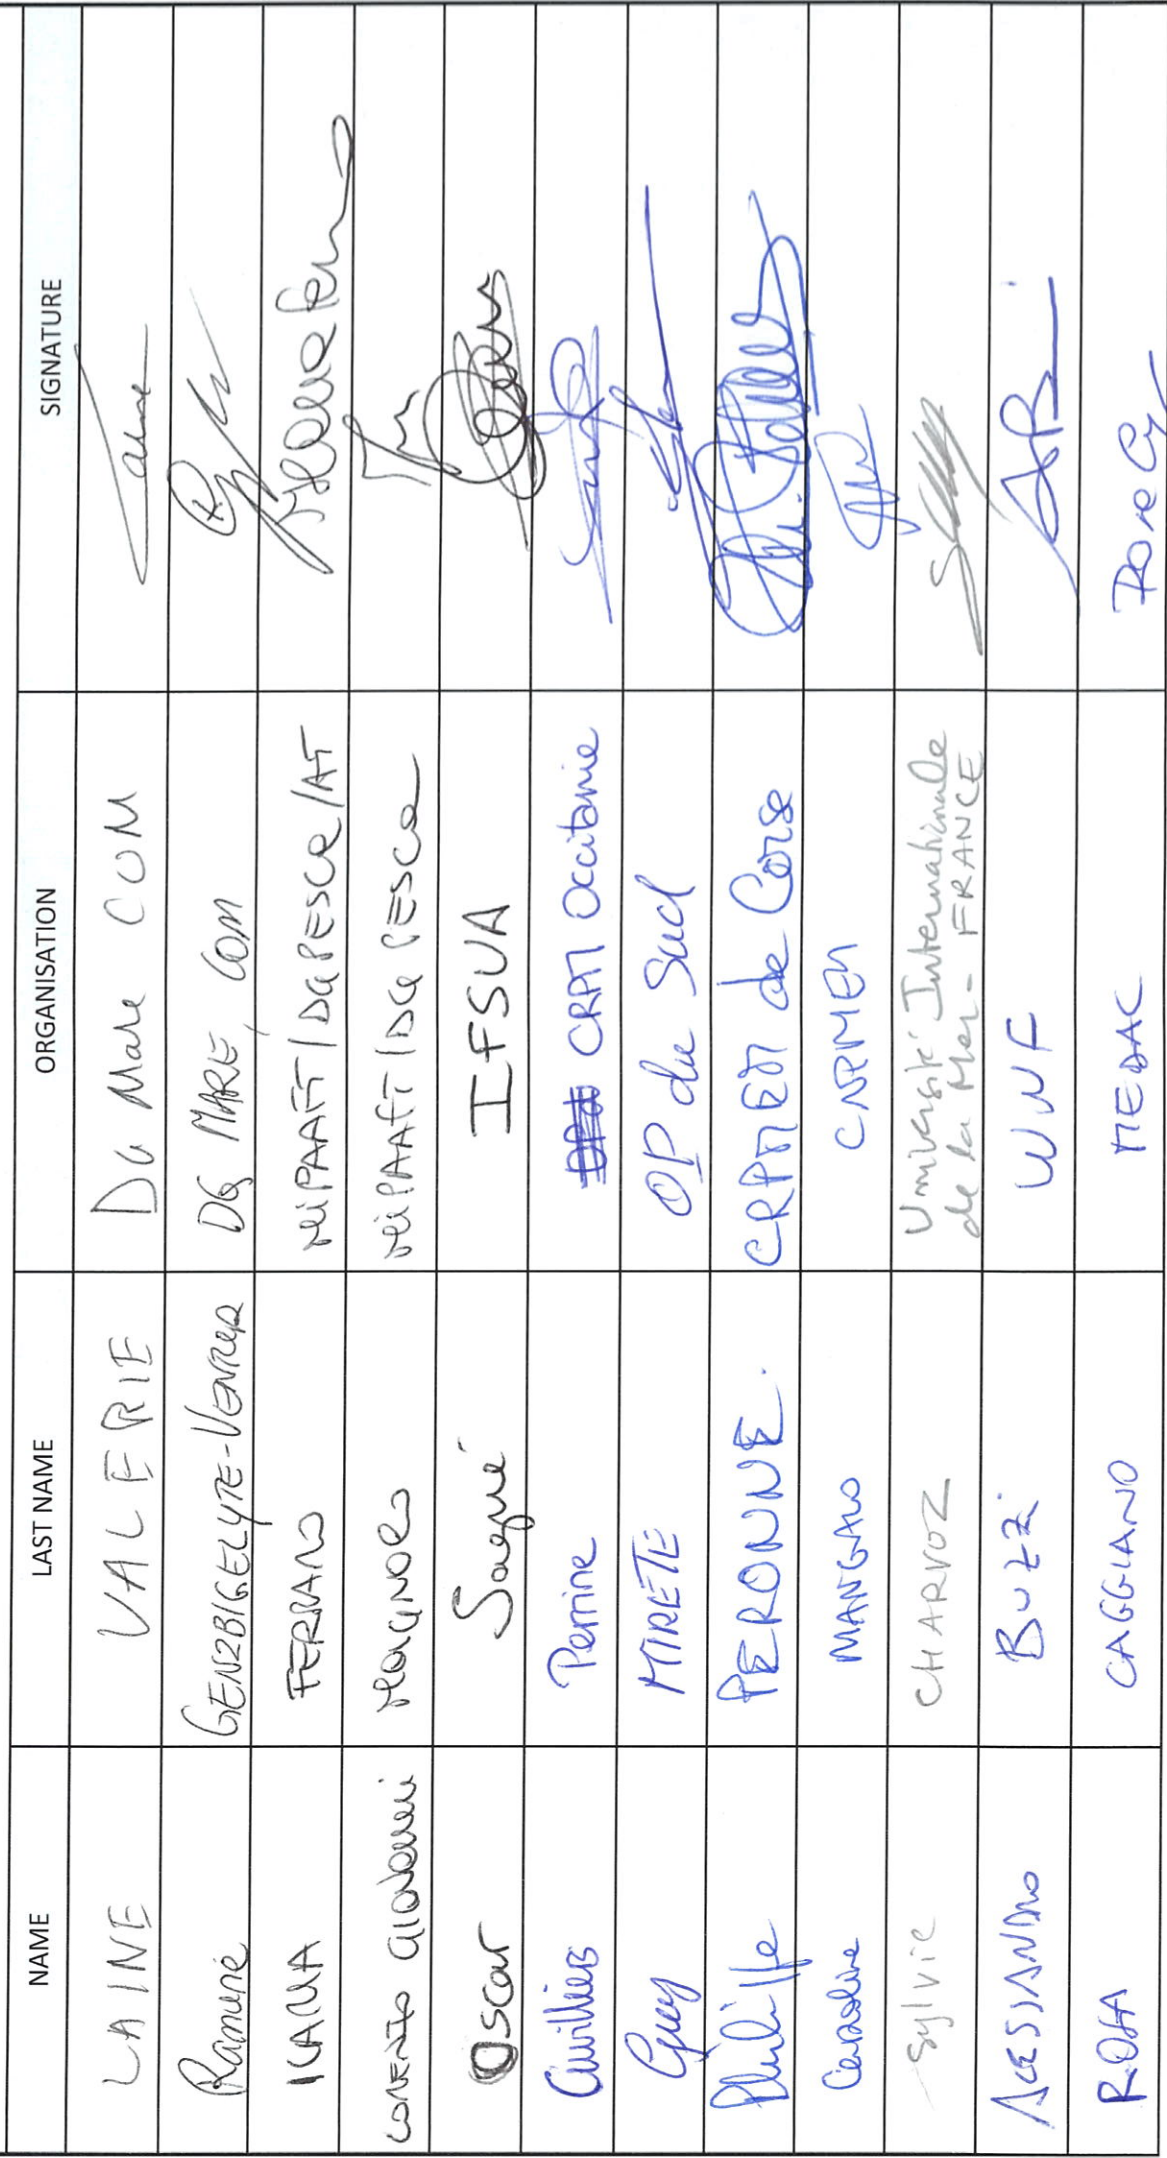 NAME LAST NAME ORGANISATION SIGNATURE
LAINE VALERIE DG Mare COM
Ramune GENZBIGELYTE-VENTURA DG MARE, COM
ILARIA FERRARO MiPAAFT/DGPESCA/AT
LORENZO GIOVANNI MAGNOLO MiPAAFT/DG PESCA
Oscar Sagué IFSUA
Cuilliers Perrine CRPM Occitanie
Guy MIRETE OP du Sud
Philippe PERONNE. CRPMEM de Corse
Caroline MANGALO CNPMEM
Sylvie CHARVOZ Université Internationale
de la Mer - FRANCE
ALESSANDRO BUZZI WWF
ROSA CAGGIANO MEDAC